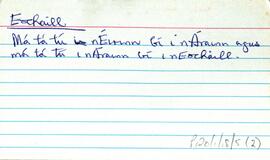 Eochaill
Má tá tú i nÉirinn bí i nÁrainn agus
má tá tú i nÁrainn bí i nEochaill.
P20/1/5/5 (2)